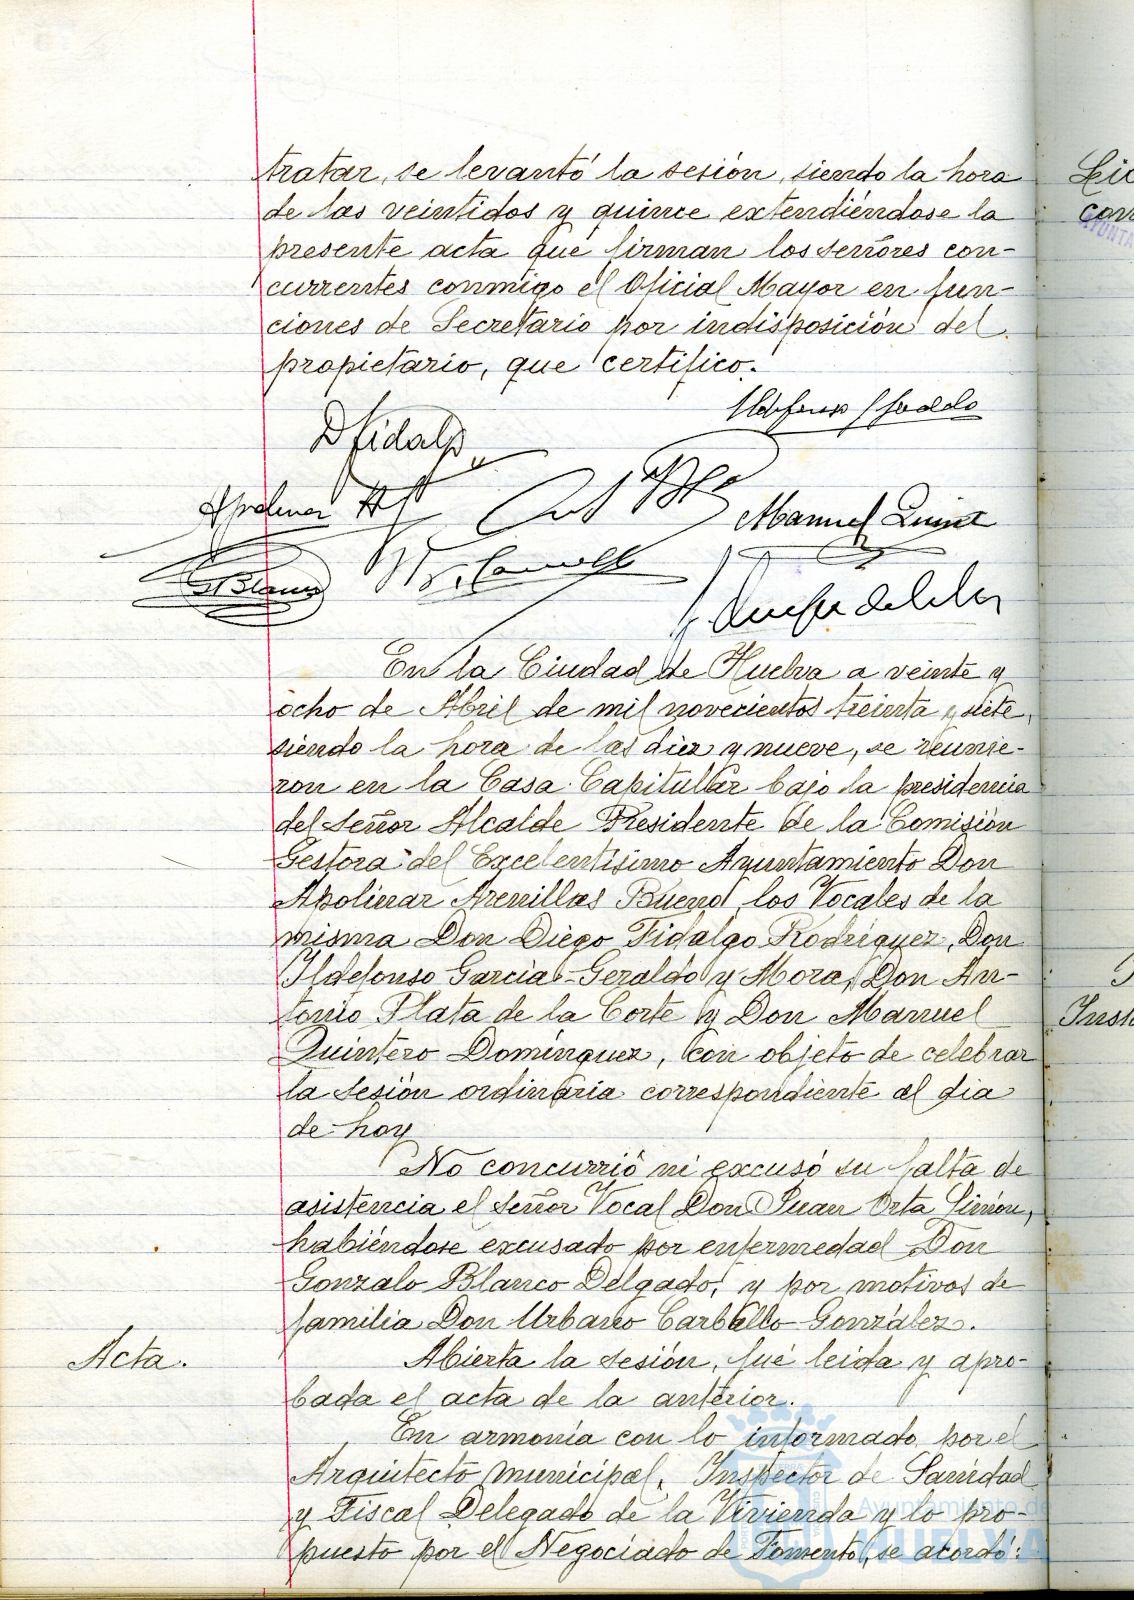 tratar, se levantó la sesión, siendo la hora
de las veintidos y quince extendiéndose la
presente acta que firman los señores con-
currentes conmigo el Oficial Mayor en fun-
ciones de Secretario por indisposición del
propietario, que certifico.
D Fidalgo
Manuel Quint
G Blanco
En la Ciudad de Huelva a veinte y
ocho de Abril de mil novecientos treinta y siete,
siendo la hora de las diez y nueve, se reunie-
ron en la Casa Capitular bajo la presidencia
del Señor Alcalde Presidente de la Comisión
Gestora del Excelentísimo Ayuntamiento Don
Apolinar Arenillas Bueno, los Vocales de la
misma Don Diego Fidalgo Rodríguez, Don
Ildefonso García-Geraldo y Mora, Don An-
tonio Plata de la Corte y Don Manuel
Quintero Domínguez, con objeto de celebrar
la sesión ordinaria correspondiente al dia
de hoy
No concurrió ni excusó su falta de
asistencia el Señor Vocal Don Juan Orta Simón,
habiéndose excusado por enfermedad Don
Gonzalo Blanco Delgado, y por motivos de
familia Don Urbano Carballo González.
Acta.
Abierta la sesión, fué leida y apro-
bada el acta de la anterior.
En armonía con lo informado por el
Arquitecto municipal, Inspector de Sanidad
y Fiscal Delegado de la Vivienda y lo pro-
puesto por el Negociado de Fomento, se acordó:
Ayuntamiento de
HUELVA